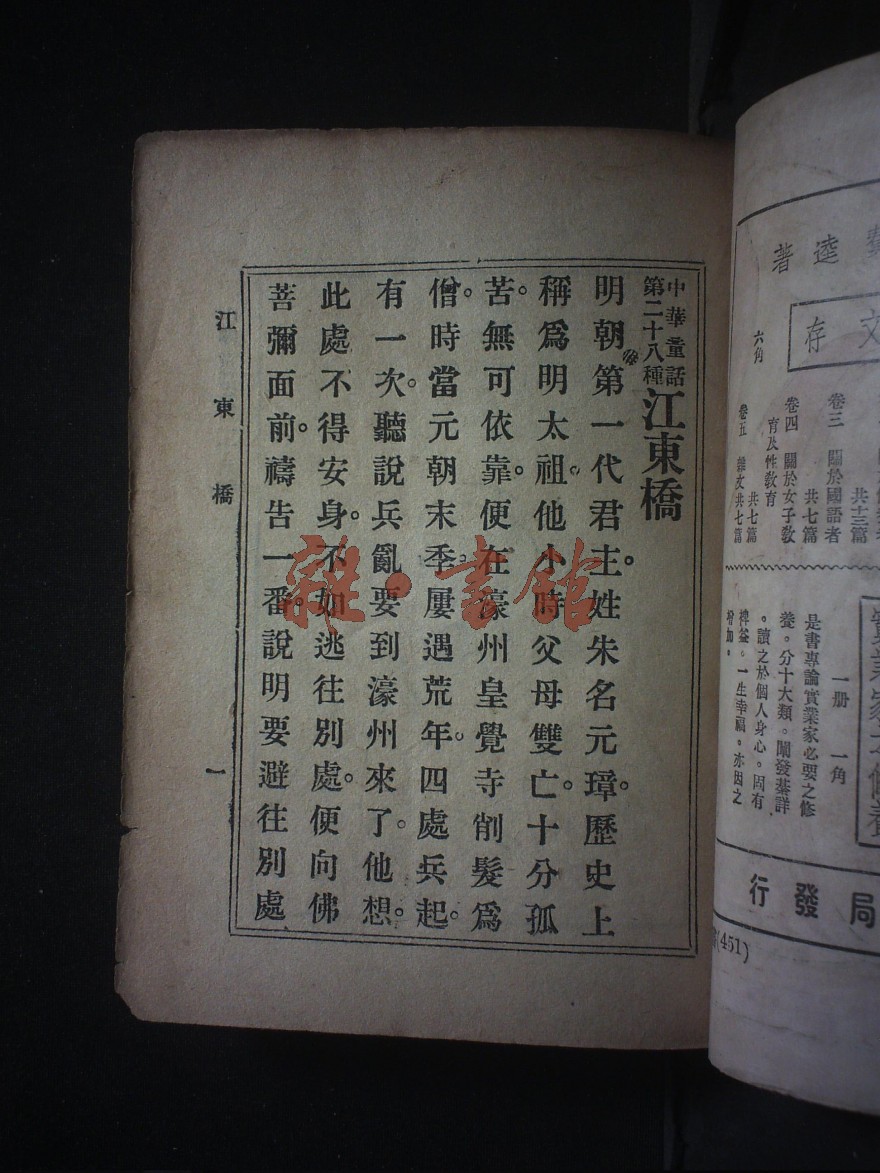 中華童話
第二十八種
江東橋
明朝第一代君主。姓朱名元璋。歷史上
稱爲明太祖。他小時父母雙亡。十分孤
苦。無可依靠。便在濠州皇覺寺削髮爲
僧。時當元朝末季。屢遇荒年。四處兵起。
有一次。聽說兵亂要到濠州來了。他想。
此處不得安身。不如逃往別處。便向佛
菩彌面前。禱告一番。說明要避往別處
江東橋
一
雜·書館
逵著
文存
六角
卷三 關於國語者
共十三篇
共七篇
卷四 關於女子敎
育及性敎育
共七篇
卷五 雜文共七篇
一册 一角
是書專論實業家必要之修
養。分十大類。闡發綦詳
。讀之於個人身心。固有
裨益。一生幸福。亦因之
增加。
局發行
(451)